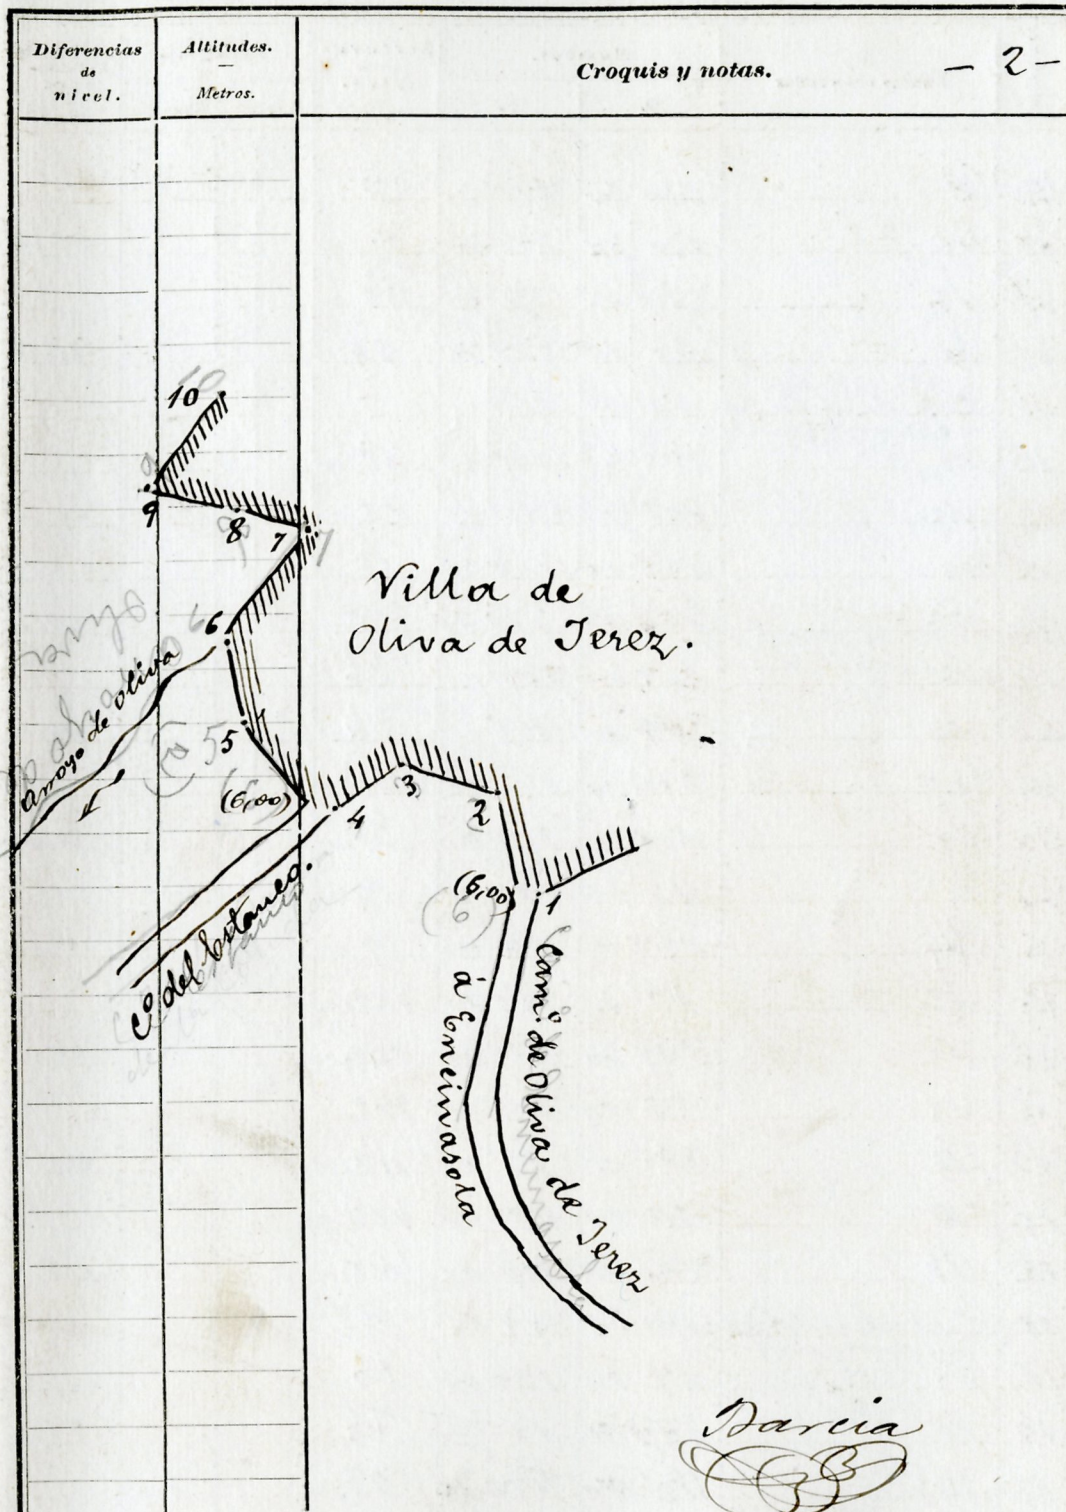 Diferencias
de
nivel.
Altitudes.
—
Metros.
Croquis y notas.
- 2 -
10
9
8
7
6
Villa de
Oliva de Jerez.
Arroyo de Oliva
5
(6,00)
4
3
2
(6,00)
1
Cº del Estanco.
Camº de Oliva de Jerez
á Encinasola
Barcia